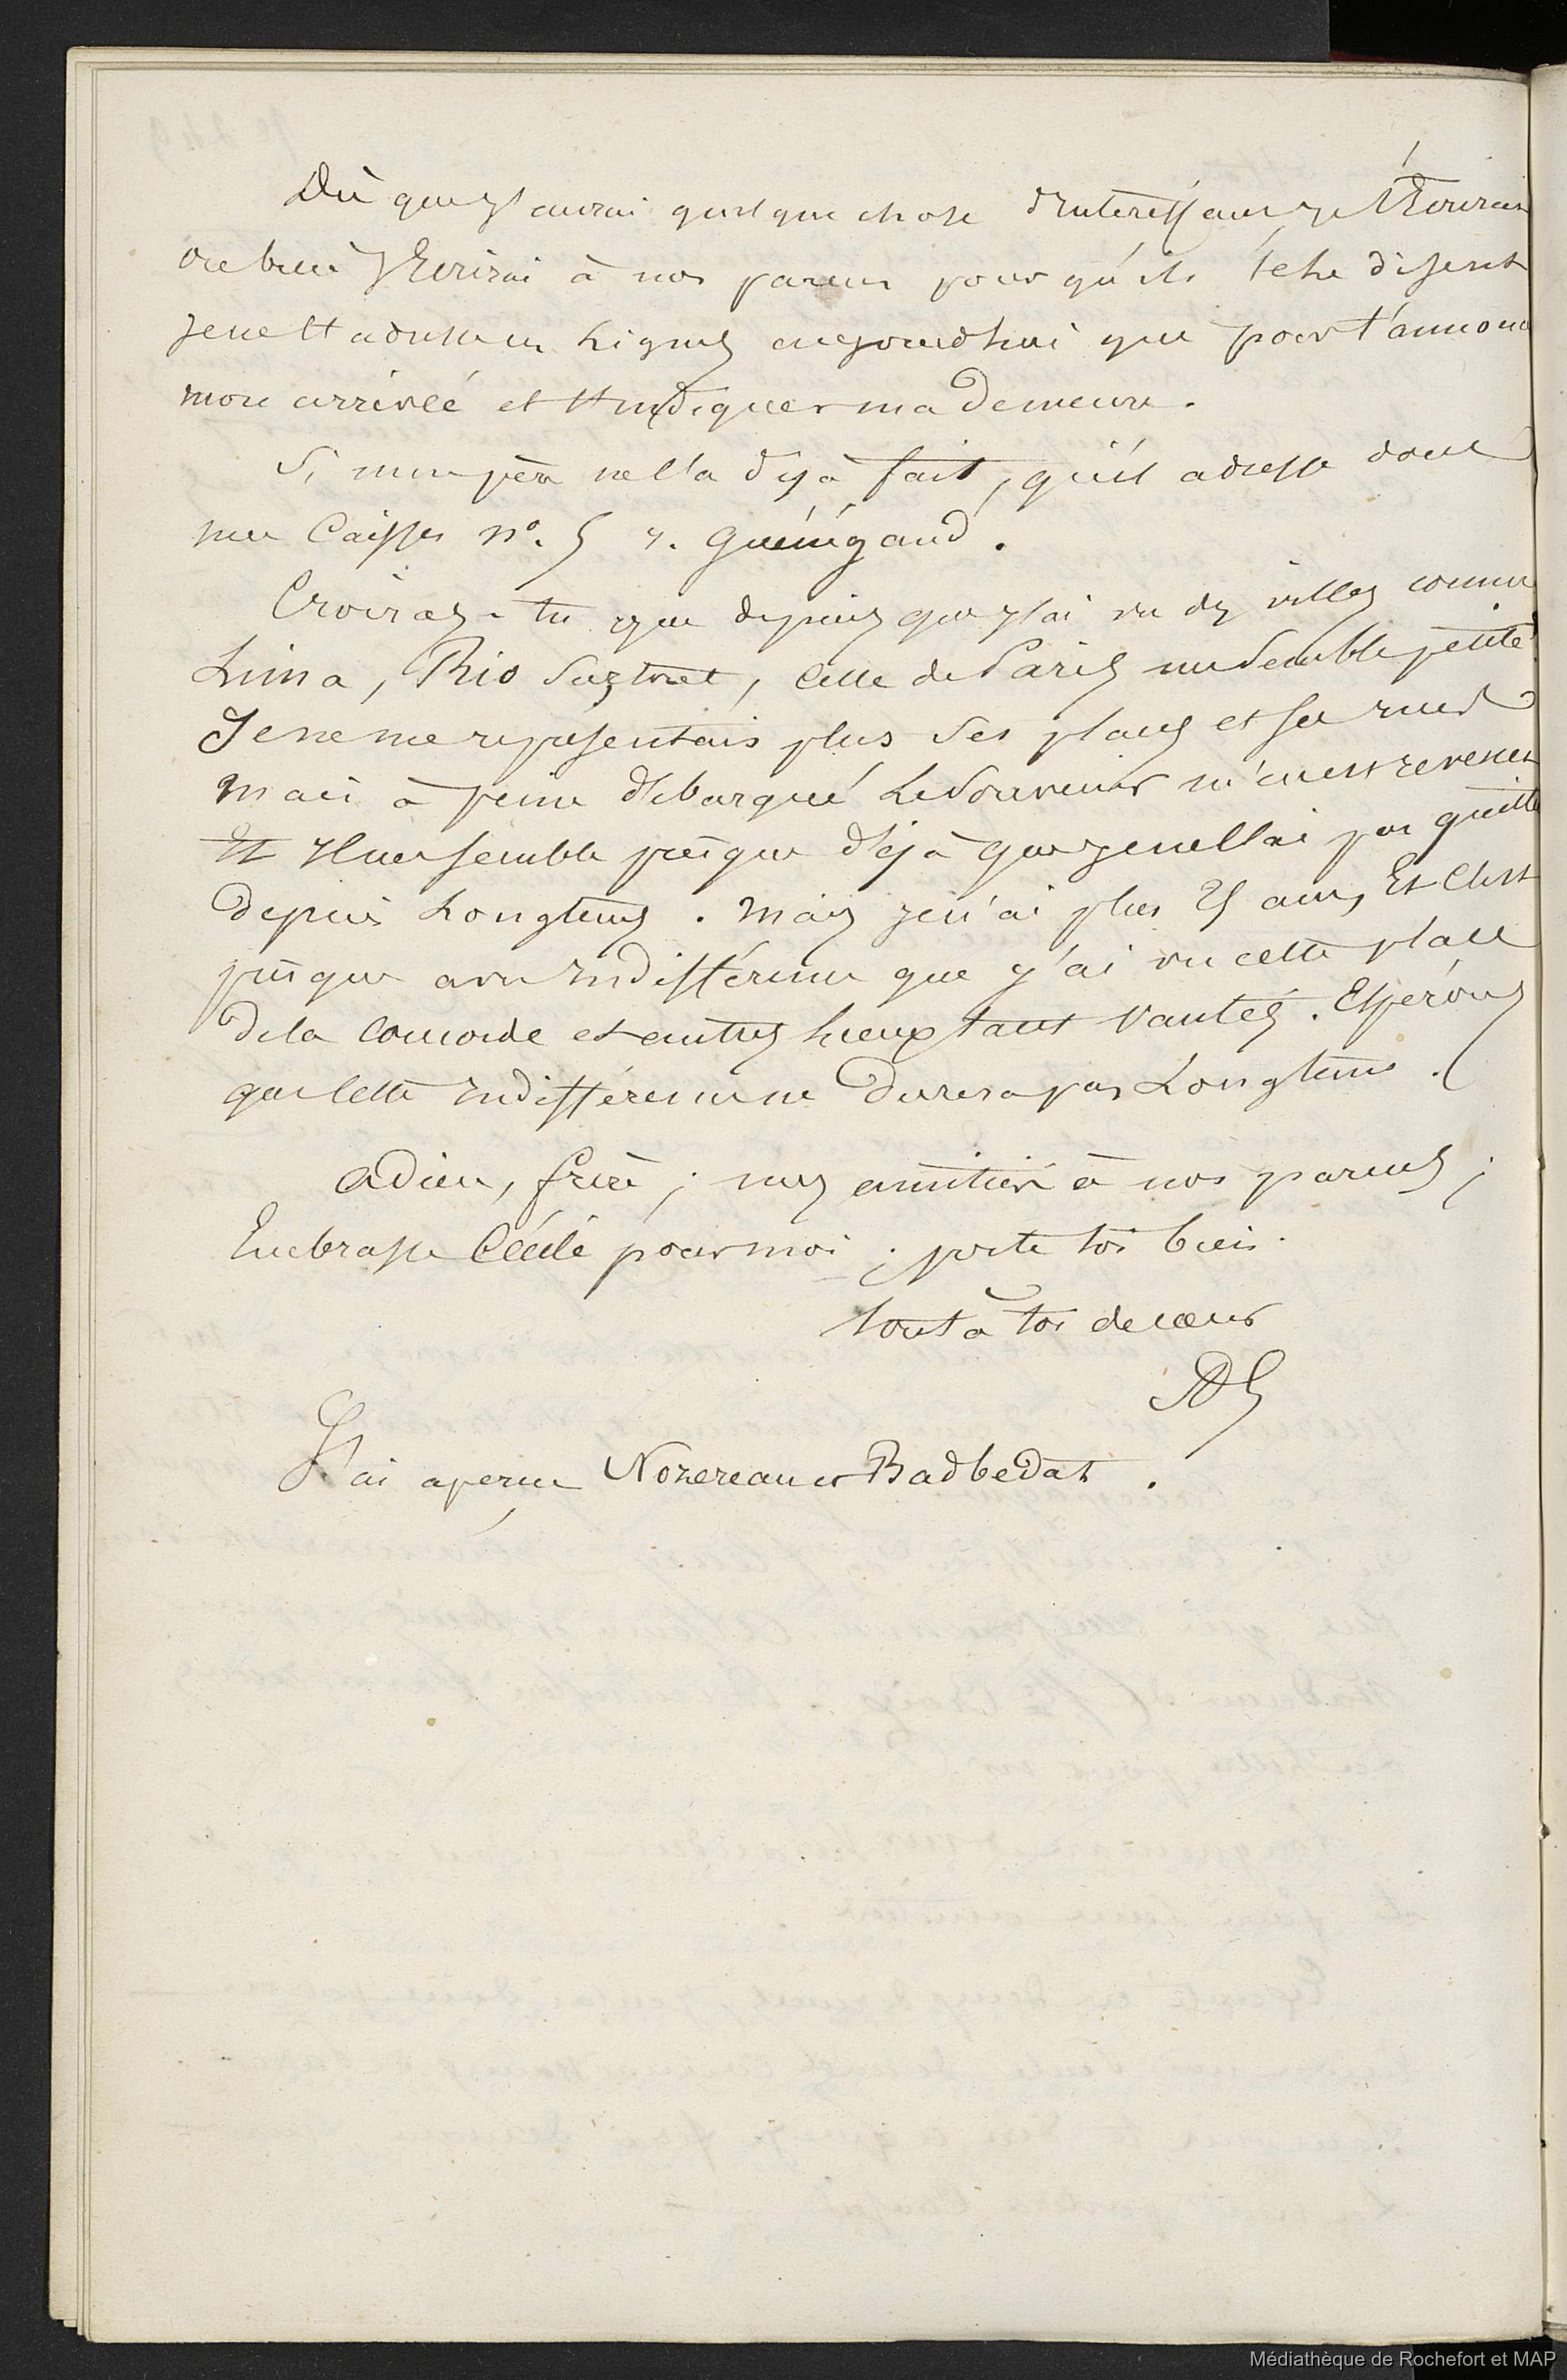 Dès que j'aurai quelque chose d'intéressant, je t'Ecrirai
ou bien J'Ecrirai à nos parens pour qu'ils te le disent
Je ne t'adresse ces Lignes aujourd'hui que pour t'annoncer
mon arrivée et t'indiquer ma demeure.
Si mon père ne l'a déjà fait, qu'il adresse donc
mes Caisses n°. 5 r. Guénégaud.
Croirais-tu que depuis que j'ai vu des villes comme
Lima, Rio surtout, celle de Paris me semble petite
Je ne me représentais plus ses places et ses rues
mais à peine débarqué Le Souvenir m'en est revenu
Et Il me semble presque déjà que je ne l'ai pas quitté
depuis Longtems. Mais je n'ai plus 25 ans, Et c'est
presque avec indifférence que j'ai vu cette place
de la Concorde et autres Lieux tant Vantés. Espérons
que cette indifférence ne durera pas Longtems.
Adieu, frère ; mes amitiés à nos parens ;
Embrasse Cécile pour moi ; porte toi bien.
tout à toi de cœur
J'ai aperçu Nozereau et Badbedat.
Médiathèque de Rochefort et MAP